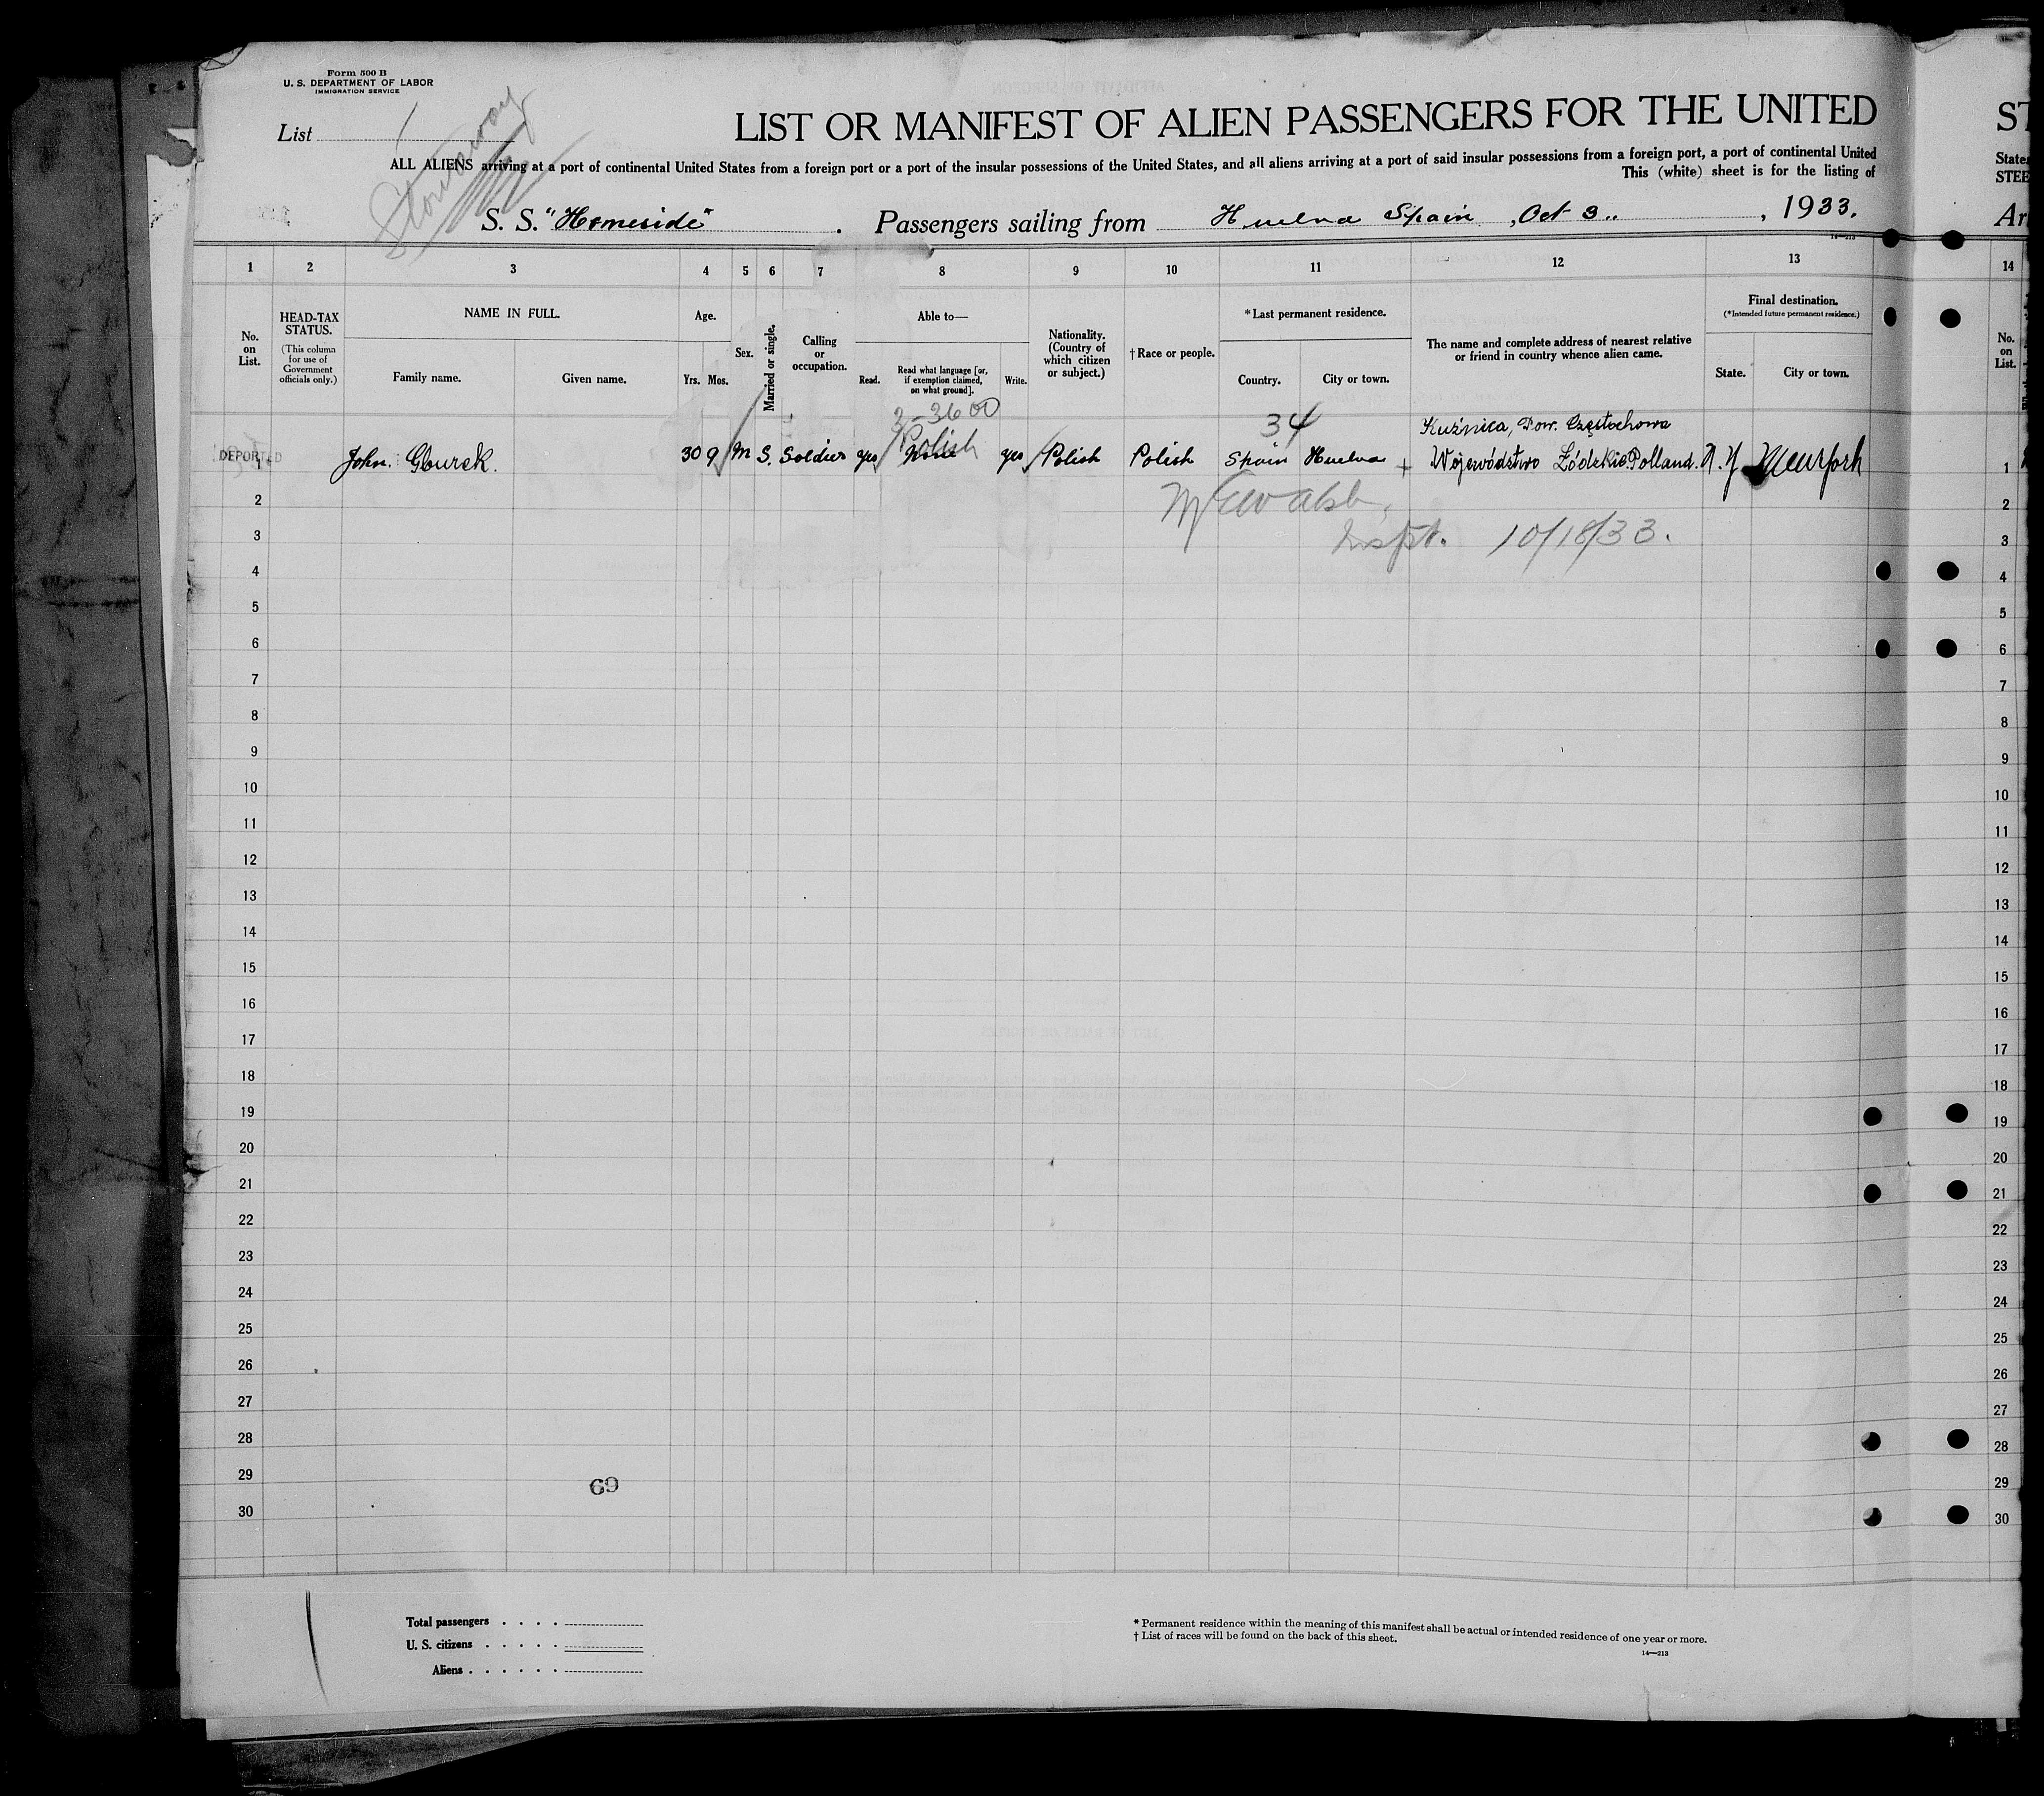 Form 500 B
U. S. DEPARTMENT OF LABOR
IMMIGRATION SERVICE
List 1
Stowaway
LIST OR MANIFEST OF ALIEN PASSENGERS FOR THE UNITED
ST
ALL ALIENS arriving at a port of continental United States from a foreign port or a port of the insular possessions of the United States, and all aliens arriving at a port of said insular possessions from a foreign port, a port of continental United
States
This (white) sheet is for the listing of
STEE
S. S. "Homeside". Passengers sailing from Huelva Spain, Oct 3", 1933.
Arr
14—213
1 2 3 4 5 6 7 8 9 10 11 12 13 14
No. on List.
HEAD-TAX STATUS.
(This column for use of Government officials only.)
NAME IN FULL.
Family name. Given name.
Age.
Yrs. Mos.
Sex.
Married or single.
Calling or occupation.
Able to—
Read. Read what language [or, if exemption claimed, on what ground]. Write.
Nationality. (Country of which citizen or subject.)
† Race or people.
* Last permanent residence.
Country. City or town.
The name and complete address of nearest relative or friend in country whence alien came.
Final destination.
(* Intended future permanent residence.)
State. City or town.
No. on List.
3-3600
34
Kuźnica, Pow. Częstochowa
DEPORTED
1 John. 30 9 M S. Soldier yes Polish yes Polish Polish Spain Huelva + Województwo Łódzkie Polland. N.Y Newyork 1
2 2
Inspt. 10/18/33.
3 3
4 4
5 5
6 6
7 7
8 8
9 9
10 10
11 11
12 12
13 13
14 14
15 15
16 16
17 17
18 18
19 19
20 20
21 21
22 22
23 23
24 24
25 25
26 26
27 27
28 28
29 69 29
30 30
Total passengers
U. S. citizens
Aliens
* Permanent residence within the meaning of this manifest shall be actual or intended residence of one year or more.
† List of races will be found on the back of this sheet.
14—213